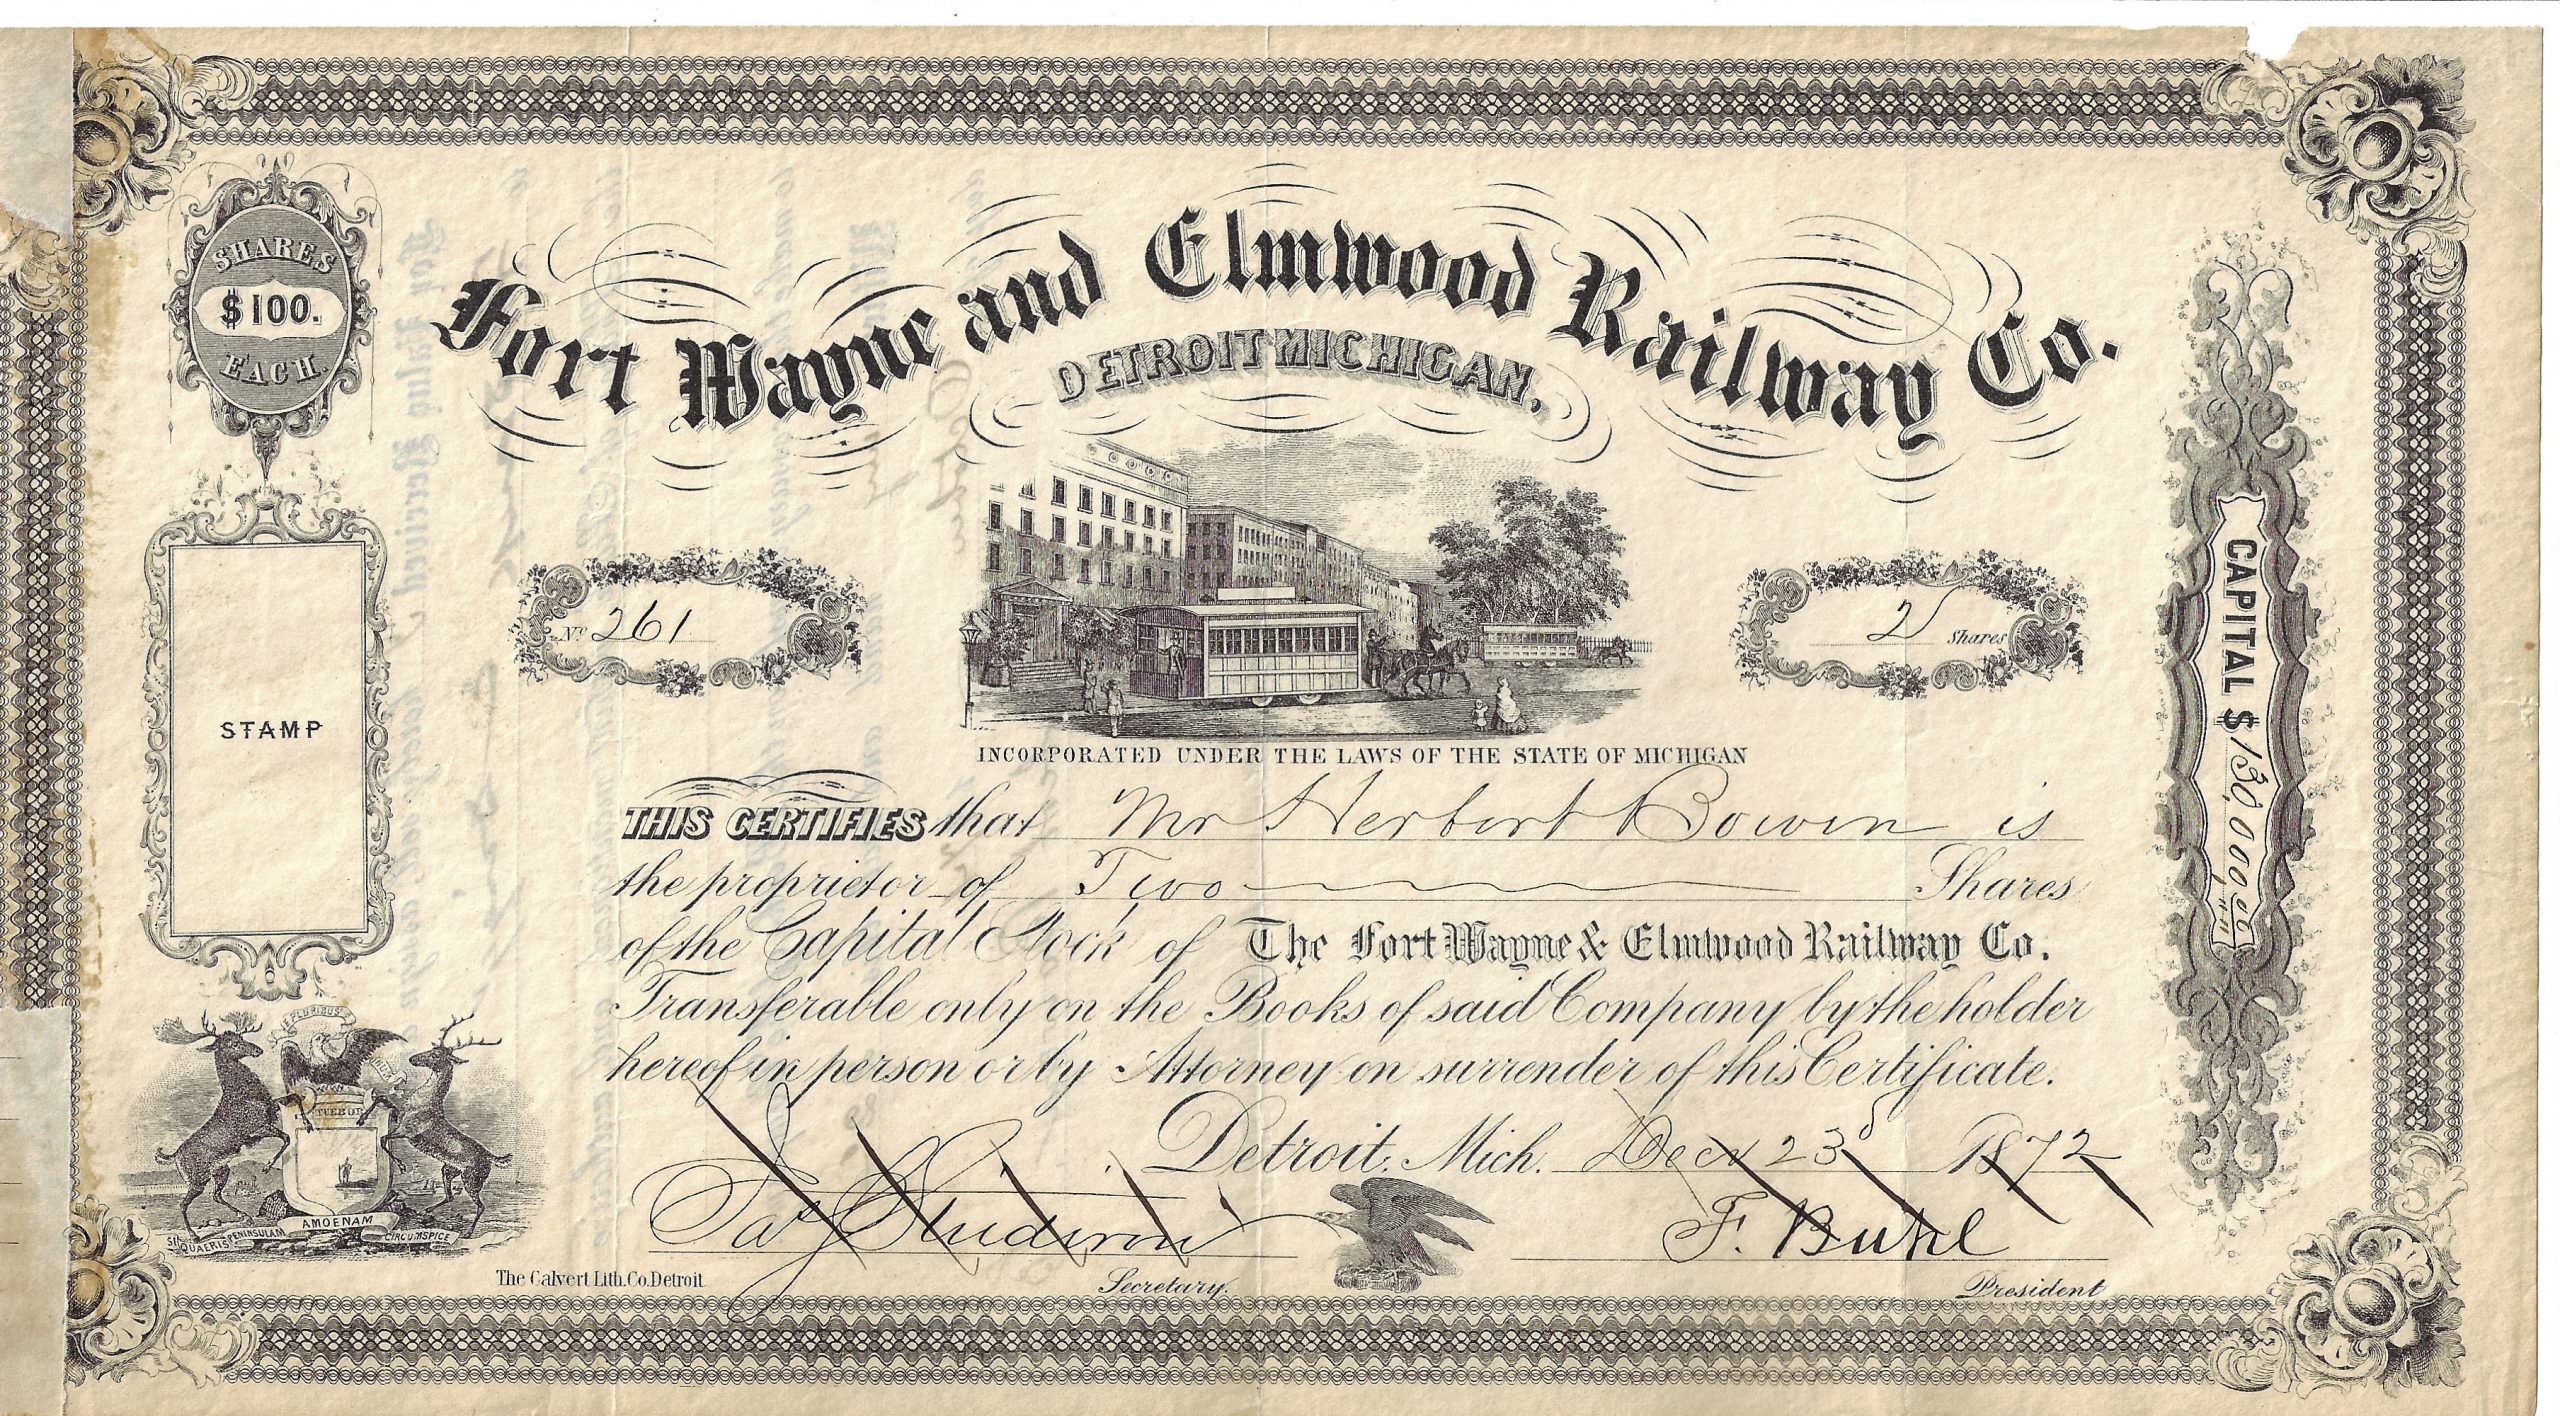 SHARES
$100.
EACH.
Fort Wayne and Elmwood Railway Co.
DETROIT MICHIGAN,
No 261
2 Shares
CAPITAL $130,000.00
STAMP
INCORPORATED UNDER THE LAWS OF THE STATE OF MICHIGAN
THIS CERTIFIES that Mr Herbert Bowen is
the proprietor of Two Shares
of the Capital Stock of The Fort Wayne & Elmwood Railway Co.
Transferable only on the Books of said Company by the holder
hereof in person or by Attorney on surrender of this Certificate.
Detroit, Mich. Decr 23d 1872
F. Buhl
Secretary.
President
E PLURIBUS
TUEBOR
SI QUAERIS PENINSULAM AMOENAM CIRCUMSPICE
The Calvert Lith. Co. Detroit